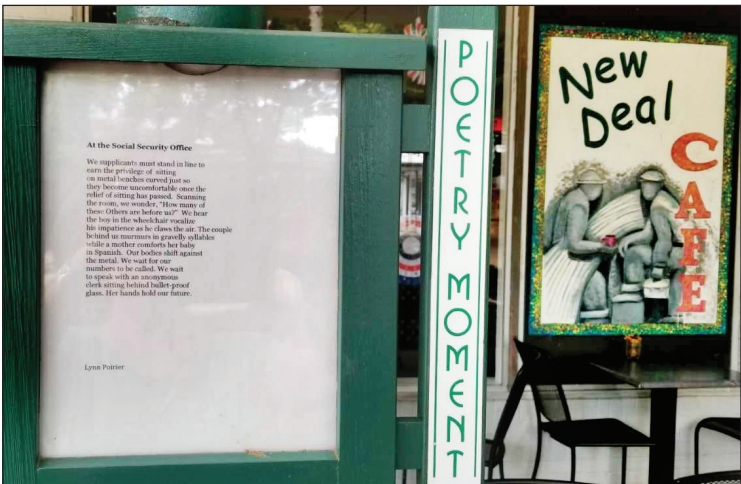 At the Social Security Office
We supplicants must stand in line to
earn the privilege of sitting
on metal benches curved just so
they become uncomfortable once the
relief of sitting has passed. Scanning
the room, we wonder, "How many of
these Others are before us?" We hear
the boy in the wheelchair vocalize
his impatience as he claws the air. The couple
behind us murmurs in gravelly syllables
while a mother comforts her baby
in Spanish. Our bodies shift against
the metal. We wait for our
numbers to be called. We wait
to speak with an anonymous
clerk sitting behind bullet-proof
glass. Her hands hold our future.
Lynn Poirier
POETRY MOMENT
New
Deal
CAFE